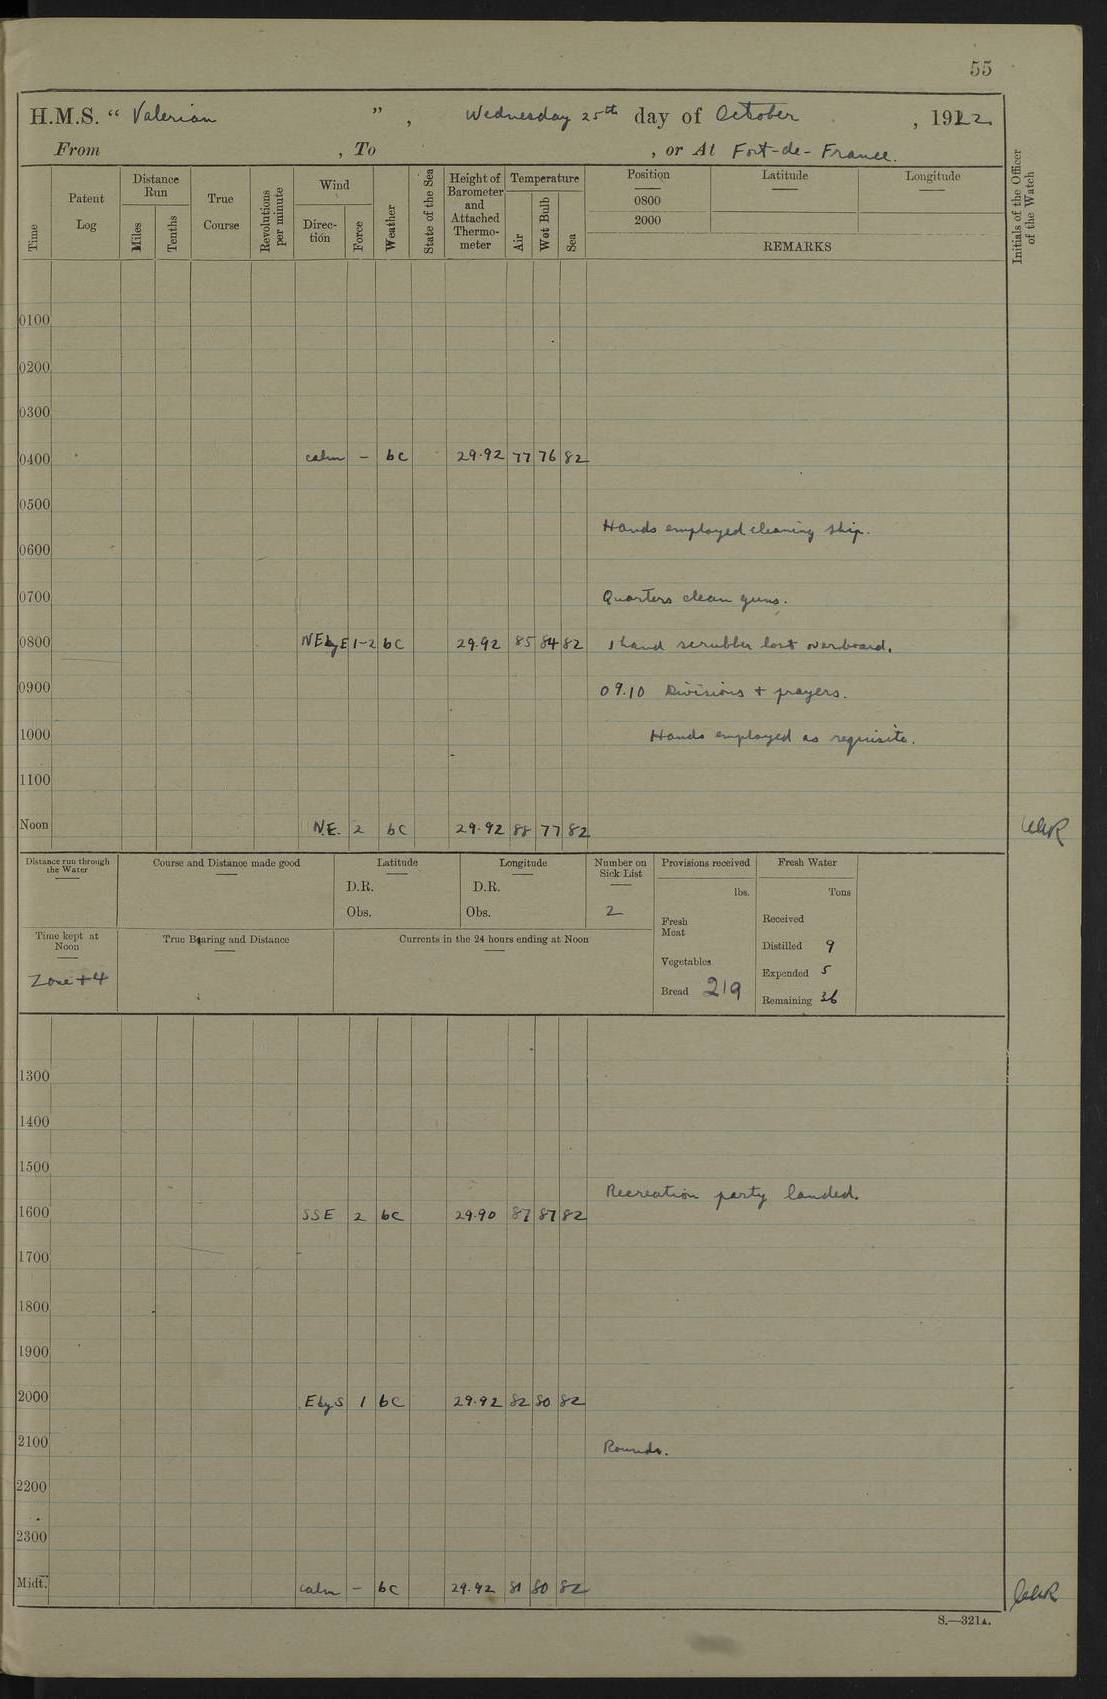 55
H.M.S. “ Valerian ” , Wednesday 25th day of October , 1922.
From , To , or At Fort-de-France.
Time Patent Log Distance Run Miles Tenths True Course Revolutions per minute Wind Direction Force Weather State of the Sea Height of Barometer and Attached Thermometer Temperature Air Wet Bulb Sea Position 0800 2000 Latitude Longitude REMARKS Initials of the Officer of the Watch
0100
0200
0300
0400 calm - bc 29.92 77 76 82
0500
Hands employed cleaning ship.
0600
0700 Quarters clean guns.
0800 NEbyE 1-2 bc 29.92 85 84 82 1 hand scrubber lost overboard.
0900 09.10 Divisions + prayers.
1000 Hands employed as requisite.
1100
Noon N.E. 2 bc 29.92 88 77 82
Distance run through the Water Course and Distance made good Latitude Longitude Number on Sick List Provisions received Fresh Water
D.R. D.R. lbs. Tons
Obs. Obs. 2 Fresh Meat Received
Time kept at Noon True Bearing and Distance Currents in the 24 hours ending at Noon Distilled 9
Vegetables Expended 5
Zone +4 Bread 219 Remaining 36
1300
1400
1500
Recreation party landed.
1600 SSE 2 bc 29.90 87 87 82
1700
1800
1900
2000 EbyS 1 bc 29.92 82 80 82
2100 Rounds.
2200
2300
Midt. calm - bc 29.92 81 80 82
S.—321A.